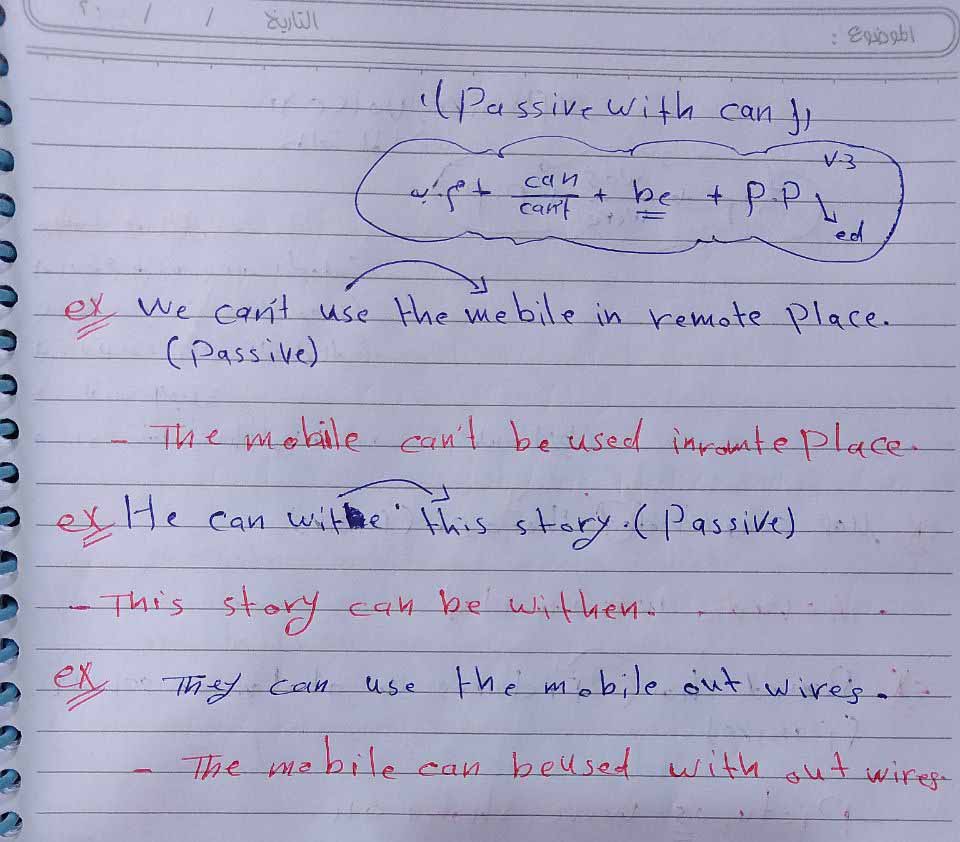 التاريخ / / ٢٠
الموضوع :
"(Passive with can)"
م.به + can/can't + be + P.P
V-3
ed
ex We can't use the mebile in remote place.
(Passive)
- The mobile can't be used in romte place.
ex He can write this story. (Passive)
- This story can be withen.
ex They can use the mobile out wires.
- The mobile can be used with out wires.